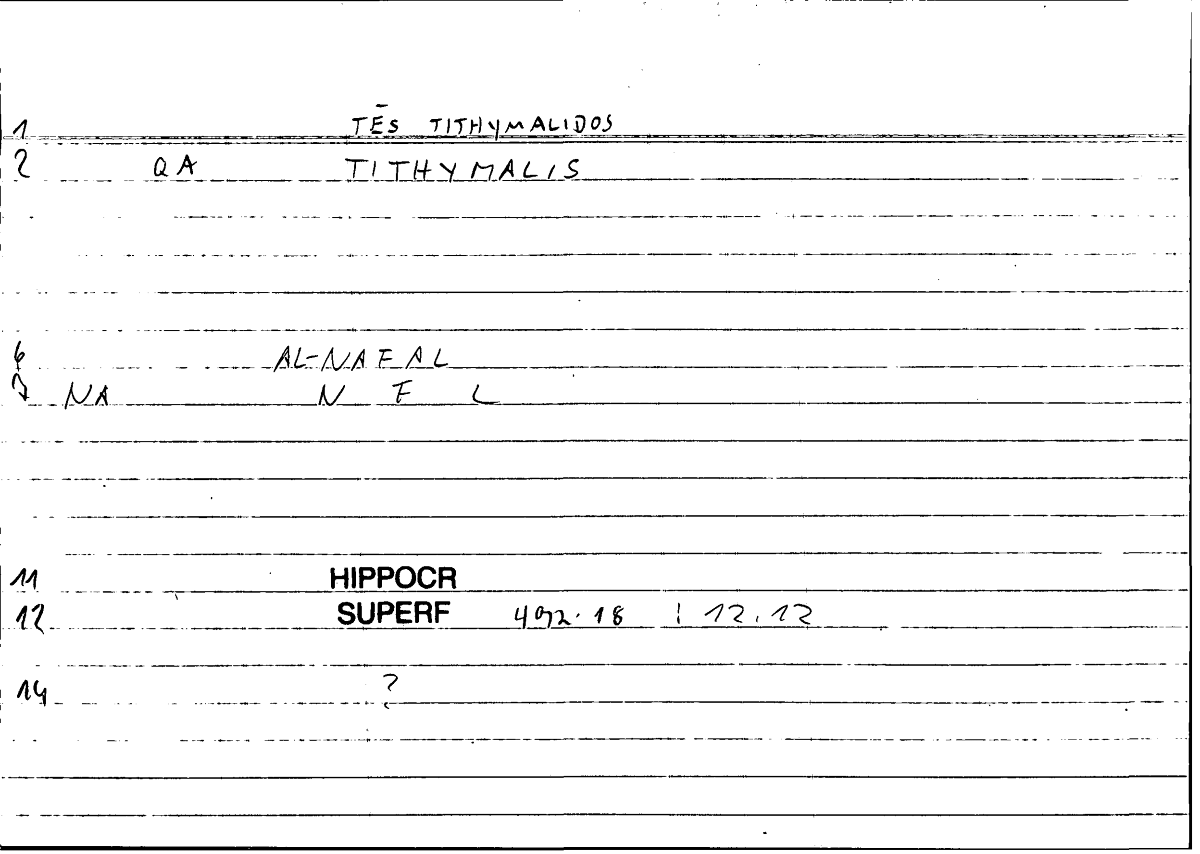 1 TĒS TITHYMALIDOS
2 QA TITHYMALIS
6 AL-NAFAL
7 NA N F L
11 HIPPOCR
12 SUPERF 492.18 : 12.12
14 ?